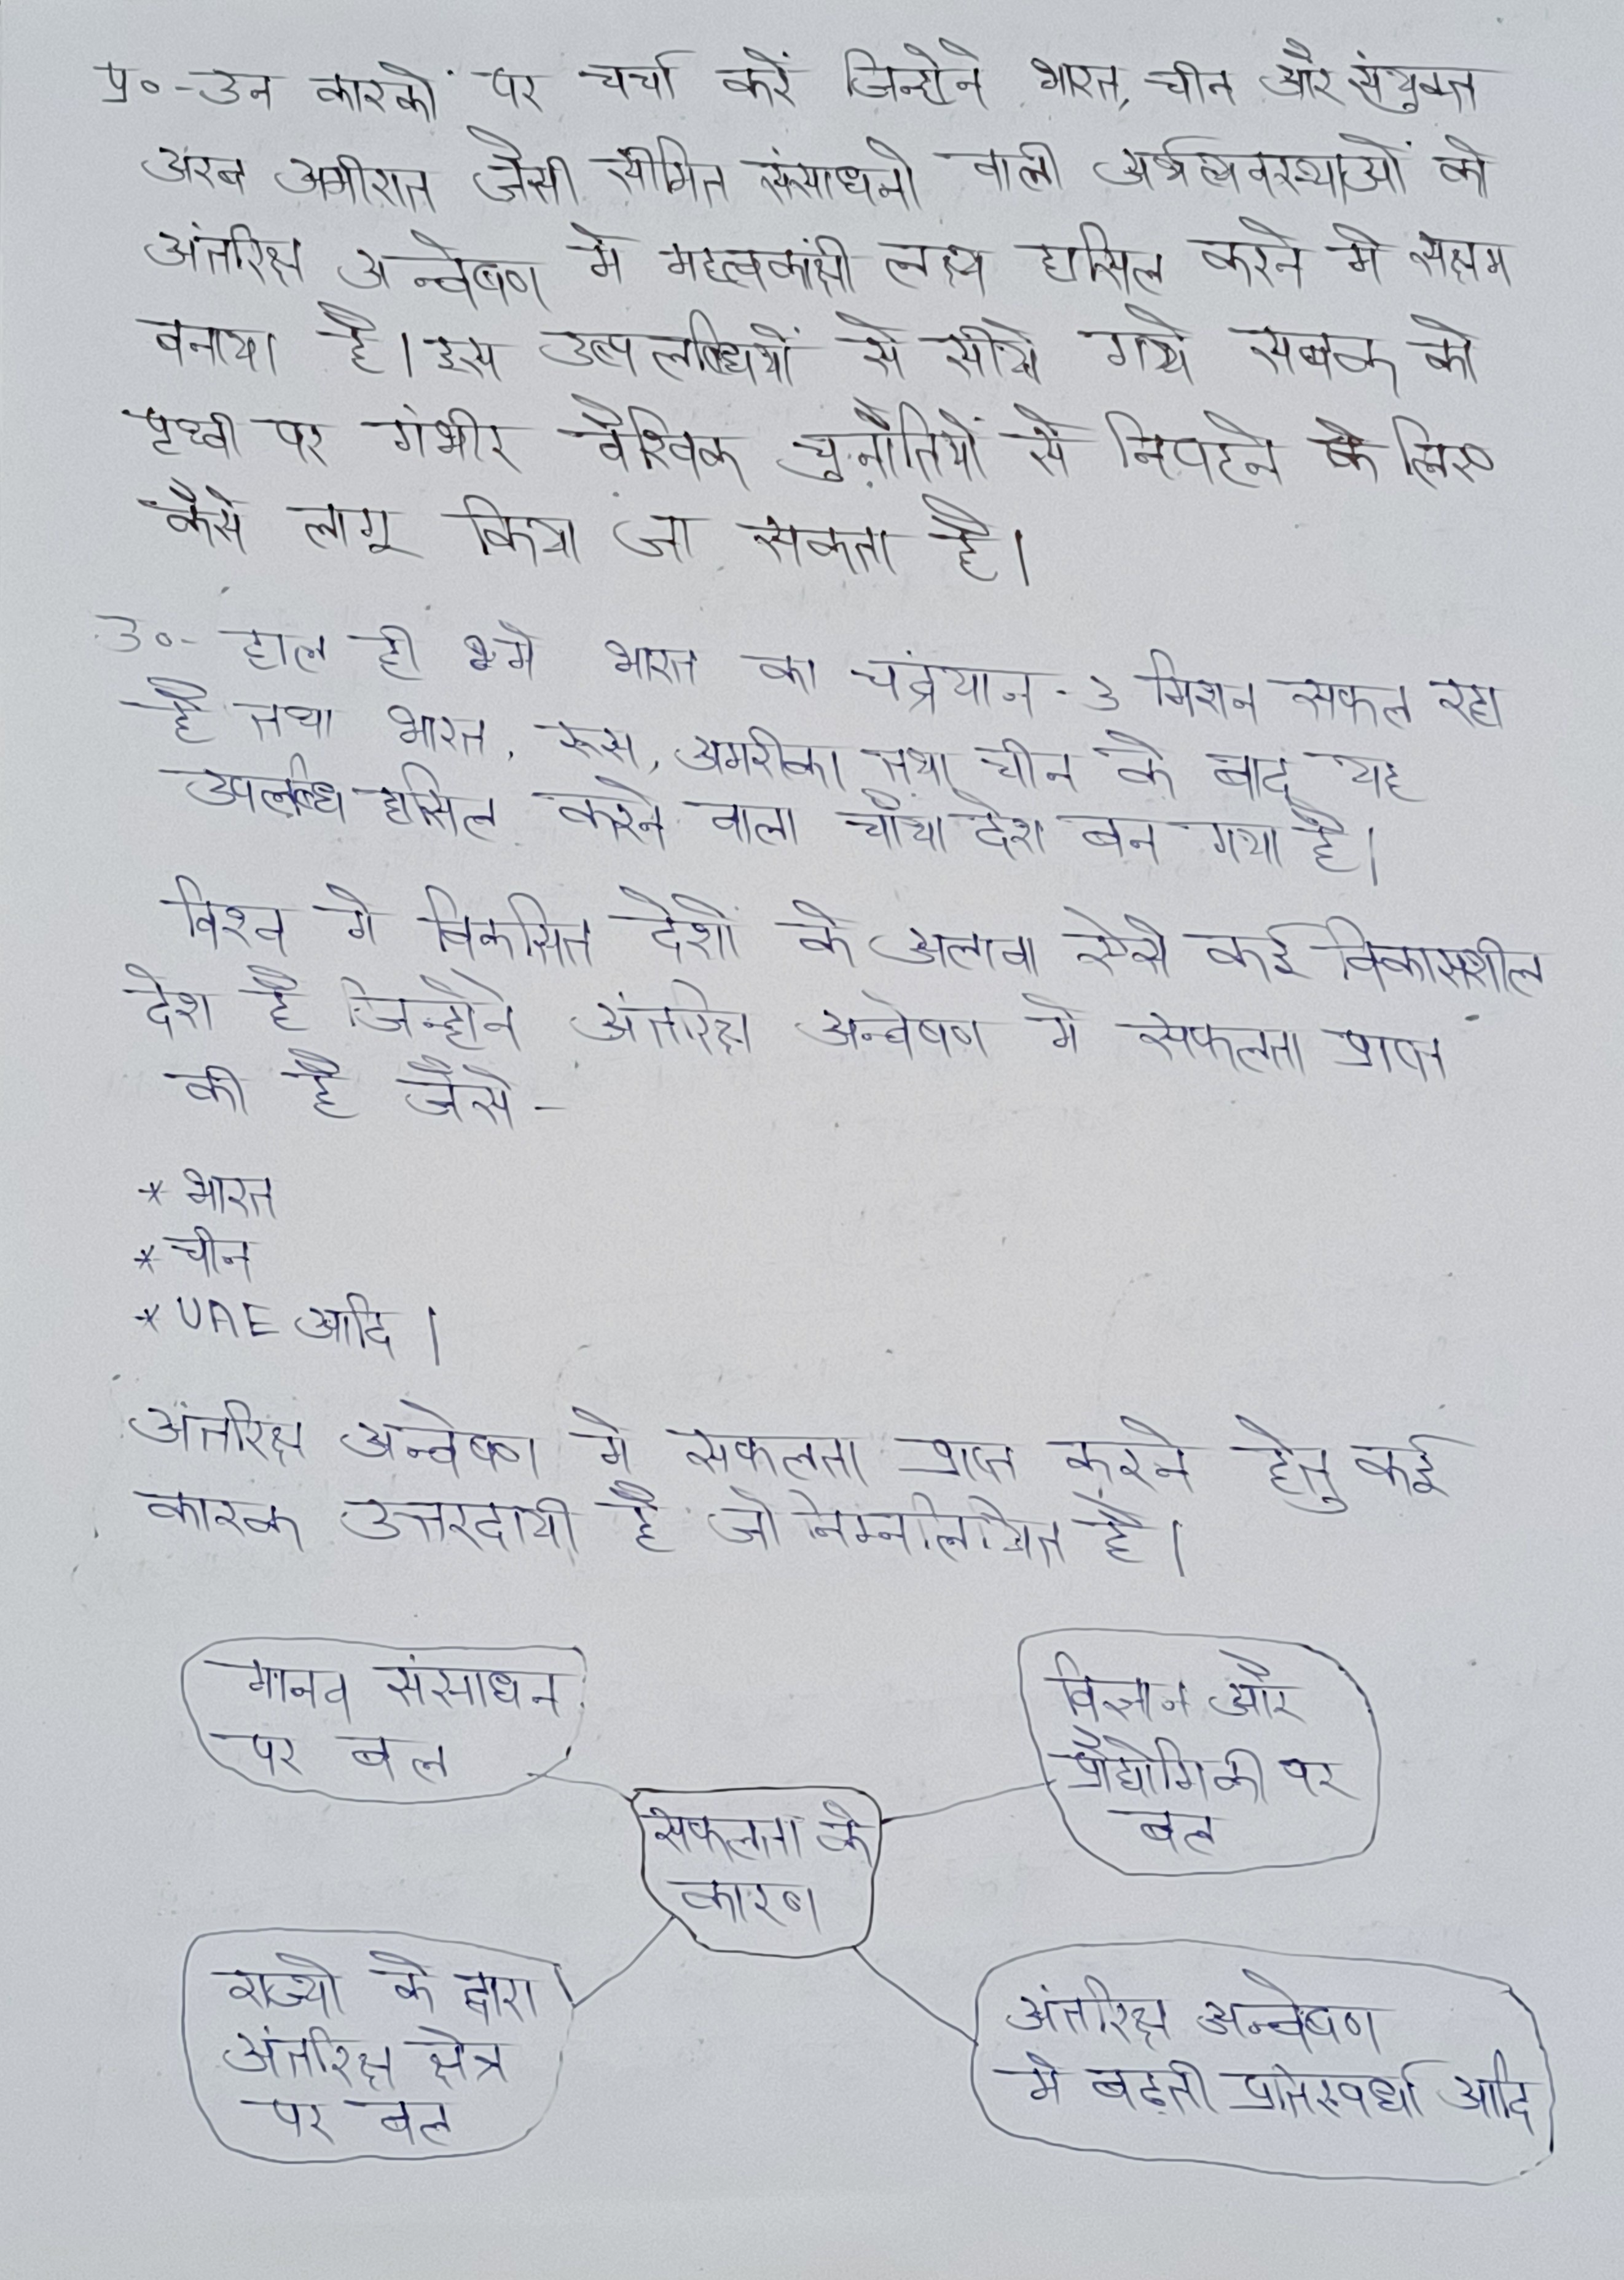 प्र०- उन कारकों पर चर्चा करें जिन्होने भारत, चीन और संयुक्त
अरब अमीरात जैसी सीमित संसाधनो वाली अर्थव्यवस्थाओं को
अंतरिक्ष अन्वेषण मे महत्वकांक्षी लक्ष्य हासिल करने मे सक्षम
बनाया है। इस उपलब्धियों से सीखे गये सबक को
पृथ्वी पर गंभीर वैश्विक चुनौतियों से निपटने के लिए
कैसे लागू किया जा सकता है।
उ०- हाल ही मे भारत का चंद्रयान-3 मिशन सफल रहा
है तथा भारत, रूस, अमरीका तथा चीन के बाद यह
उपलब्धि हासिल करने वाला चौथा देश बन गया है।
विश्व मे विकसित देशों के अलावा ऐसे कई विकासशील
देश है जिन्होने अंतरिक्ष अन्वेषण मे सफलता प्राप्त
की है जैसे -
* भारत
* चीन
* UAE आदि।
अंतरिक्ष अन्वेषण मे सफलता प्राप्त करने हेतु कई
कारक उत्तरदायी है जो निम्नलिखित है।
मानव संसाधन
पर बल
विज्ञान और
प्रौद्योगिकी पर
बल
सफलता के
कारण
राज्यो के द्वारा
अंतरिक्ष क्षेत्र
पर बल
अंतरिक्ष अन्वेषण
मे बढ़ती प्रतिस्पर्धा आदि